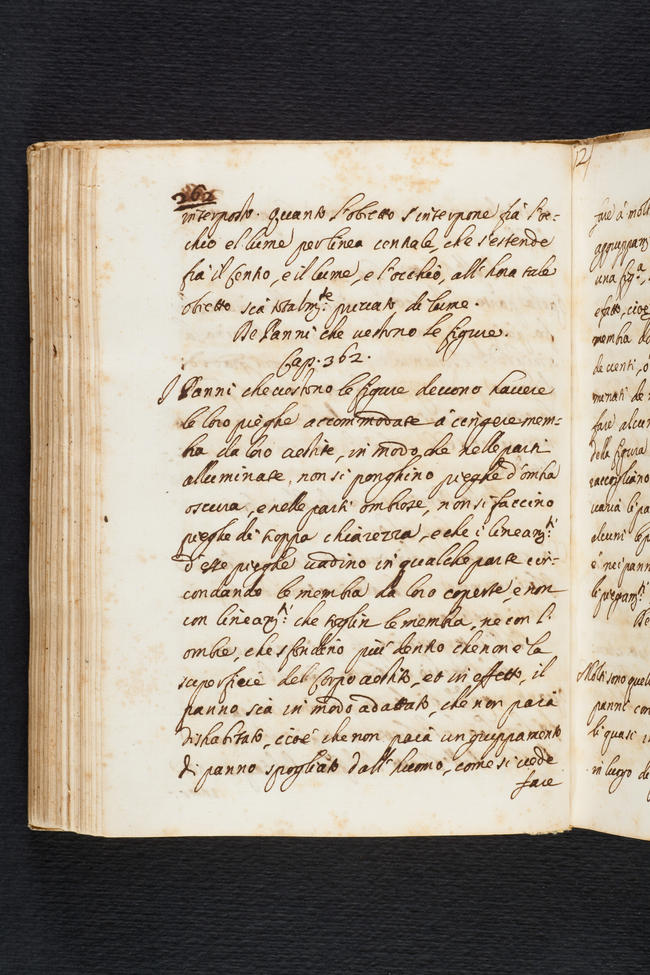 262
interposto. Quanto l'obietto s'interpone frà l'oc-
chio el lume per linea centrale, che s'estende
frà il centro, e il lume, e l'occhio, all'hora tale
obietto sarà totalmte: privato di lume.
De Panni che vestono le figure.
Cap. 362.
I Panni che vestono le figure devono havere
le loro pieghe accommodate à cingere mem-
bra da loro vestite, in modo, che nelle parti
alluminate, non si ponghino pieghe d'ombra
oscura, e nelle parti ombrose, non si faccino
pieghe di troppa chiarezza, e che i lineamti:
d'esse pieghe vadino in qualche parte cir-
condando le membra da loro coperte, e non
con lineamti: che taglin le membra, ne con l'
ombre, che sfondino più dentro che non è la
superficie del Corpo vestito, et in effetto, il
panno sia in modo adattato, che non paia
dishabitato, cioè che non paia un gruppamento
di panno spogliato dall'huomo, come si vede
fare
121
fare à molti
aggruppam
una figa.
e fatto, cioè
membra da
de venti, ò
minati de
fare alcun
della figura
raccogliano
varia le pa
alcuni le p
e nei pann
li piegamti:
De
Molti sono quell
panni con
li quasi in
in luogo de